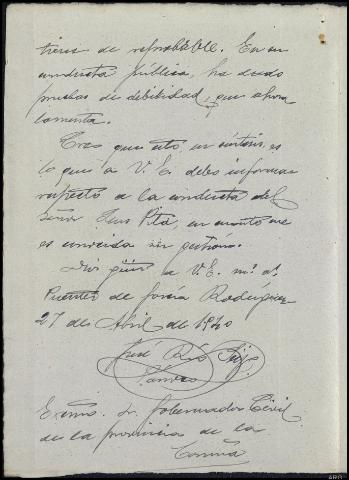 tiene de reprobable. En su
conducta pública, ha dado
pruebas de debilidad, que ahora
lamenta.
Creo que esto, en síntesis, es
lo que a V. E. debo informar
respecto a la conducta del
Señor Pita, en cuanto me
es conocida su gestión.
Dios güe a V. E. m.s a.s
Puentes de García Rodríguez
27 de Abril de 1940
José
Excmo. Sr. Gobernador Civil
de la provincia de la
Coruña